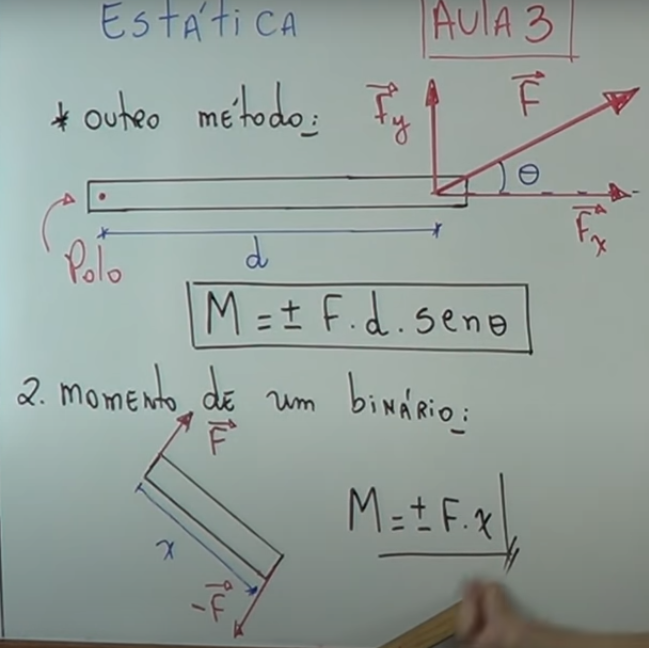 Estática
Aula 3
* outro método:
Fy
F
θ
Fx
Polo
d
M = ± F.d.senθ
2. momento de um binário:
F
x
M = ± F.x
-F